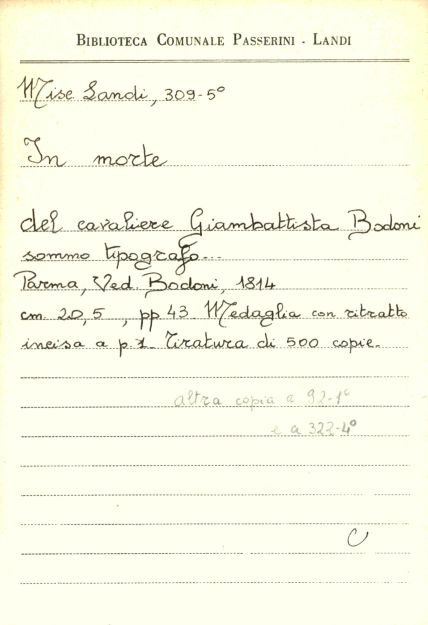 BIBLIOTECA COMUNALE PASSERINI - LANDI
Misc Landi, 309-5°
In morte
del cavaliere Giambattista Bodoni
sommo tipografo...
Parma, Ved. Bodoni, 1814
cm. 20,5 , pp 43. Medaglia con ritratto
incisa a p. 1. Tiratura di 500 copie.
altra copia a 92-1°
e a 322-4°
C